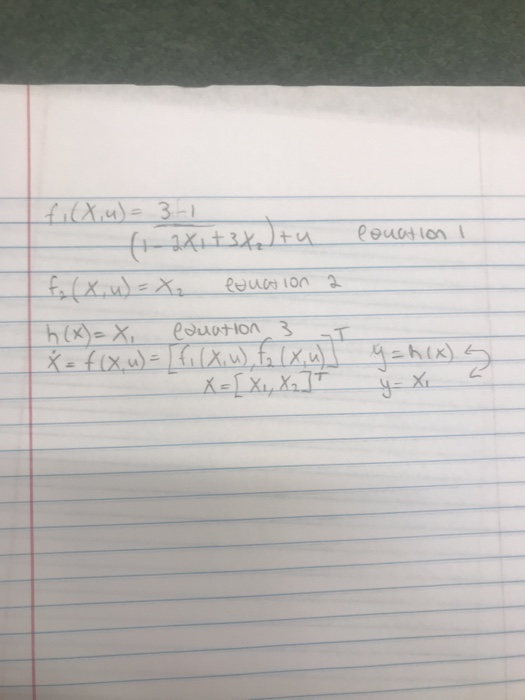 f₁(X,u) = 3-1
(1-2X₁+3X₂)+u equation 1
f₂(X,u) = X₂ equation 2
h(x) = X₁ equation 3
Ẋ = f(X,u) = [f₁(X,u), f₂(X,u)]ᵀ y = h(x)
X = [X₁, X₂]ᵀ y = X₁